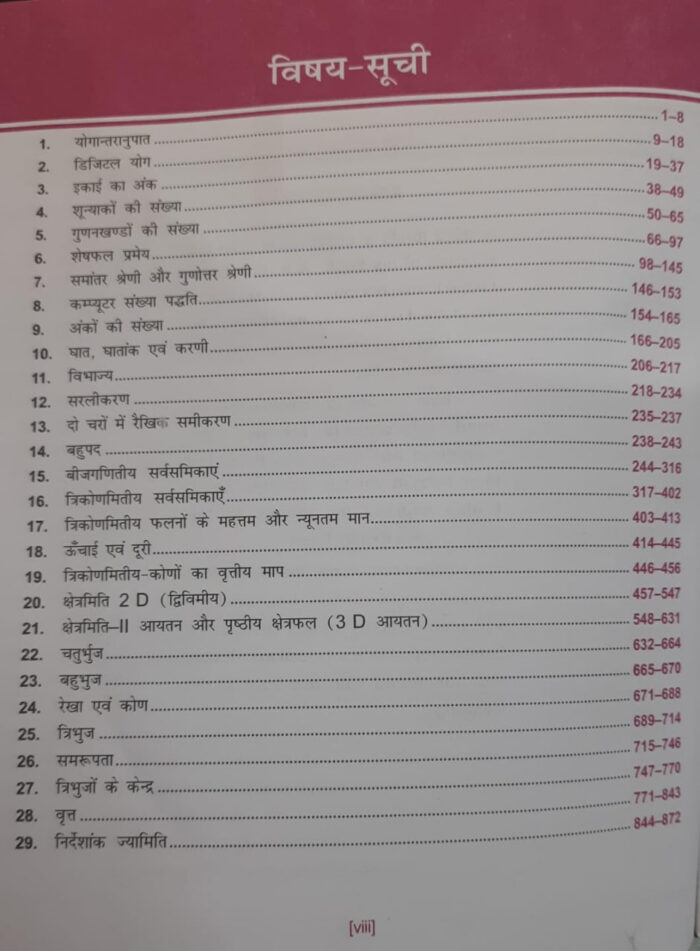 विषय-सूची
1. योगान्तरानुपात 1–8
2. डिजिटल योग 9–18
3. इकाई का अंक 19–37
4. शून्याकों की संख्या 38–49
5. गुणनखण्डों की संख्या 50–65
6. शेषफल प्रमेय 66–97
7. समांतर श्रेणी और गुणोत्तर श्रेणी 98–145
8. कम्प्यूटर संख्या पद्धति 146–153
9. अंकों की संख्या 154–165
10. घात, घातांक एवं करणी 166–205
11. विभाज्य 206–217
12. सरलीकरण 218–234
13. दो चरों में रैखिक समीकरण 235–237
14. बहुपद 238–243
15. बीजगणितीय सर्वसमिकाएं 244–316
16. त्रिकोणमितीय सर्वसमिकाएँ 317–402
17. त्रिकोणमितीय फलनों के महत्तम और न्यूनतम मान 403–413
18. ऊँचाई एवं दूरी 414–445
19. त्रिकोणमितीय-कोणों का वृत्तीय माप 446–456
20. क्षेत्रमिति 2 D (द्विविमीय) 457–547
21. क्षेत्रमिति–II आयतन और पृष्ठीय क्षेत्रफल (3 D आयतन) 548–631
22. चतुर्भुज 632–664
23. बहुभुज 665–670
24. रेखा एवं कोण 671–688
25. त्रिभुज 689–714
26. समरूपता 715–746
27. त्रिभुजों के केन्द्र 747–770
28. वृत्त 771–843
29. निर्देशांक ज्यामिति 844–872
[viii]